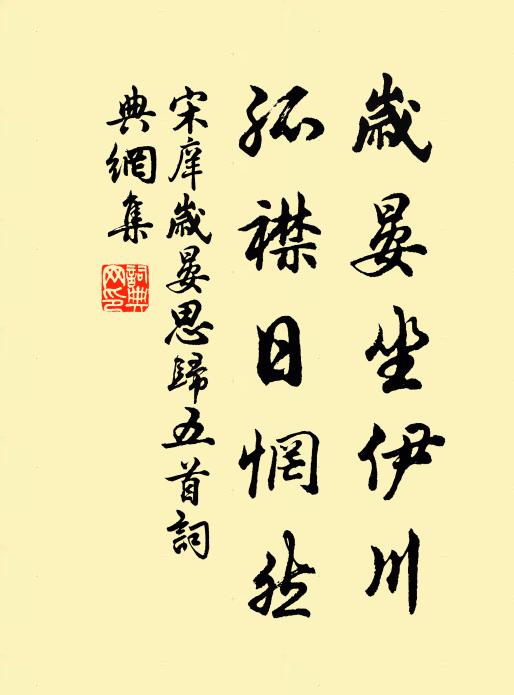 歲晏坐伊川
孤襟日惘然
宋庠歲晏思歸五首詞
典網集
詞典網印